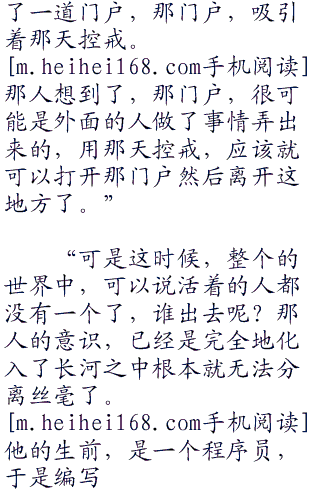 了一道门户，那门户，吸引
着那天控戒。
[m.heihei168.com手机阅读]
那人想到了，那门户，很可
能是外面的人做了事情弄出
来的，用那天控戒，应该就
可以打开那门户然后离开这
地方了。”
“可是这时候，整个的
世界中，可以说活着的人都
没有一个了，谁出去呢？那
人的意识，已经是完全地化
入了长河之中根本就无法分
离丝毫了。
[m.heihei168.com手机阅读]
他的生前，是一个程序员，
于是编写